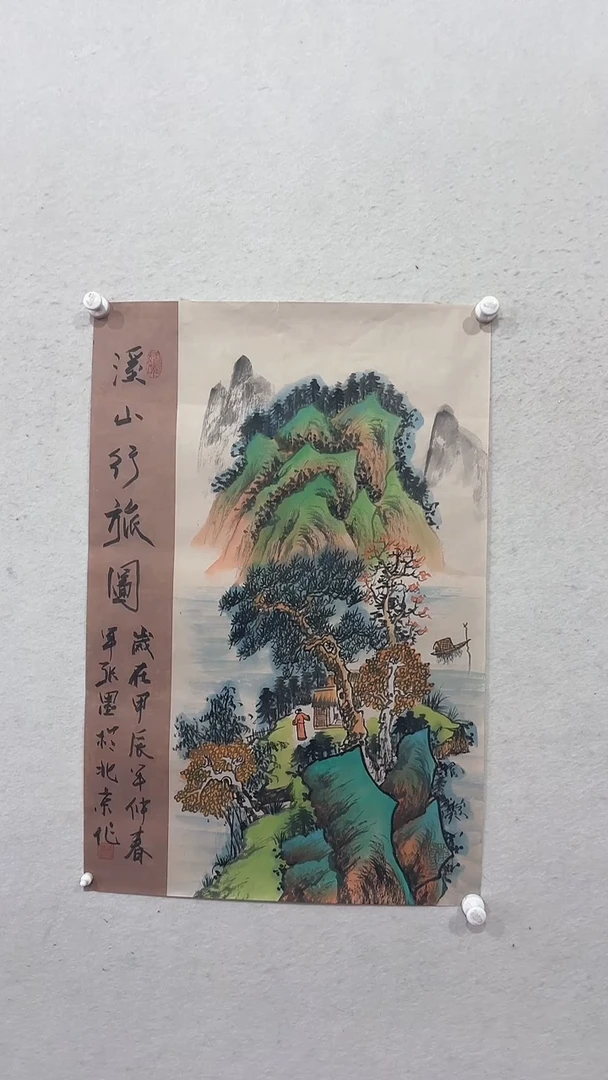 溪山行旅圖
歲在甲辰年仲春
軍張墨於北京作